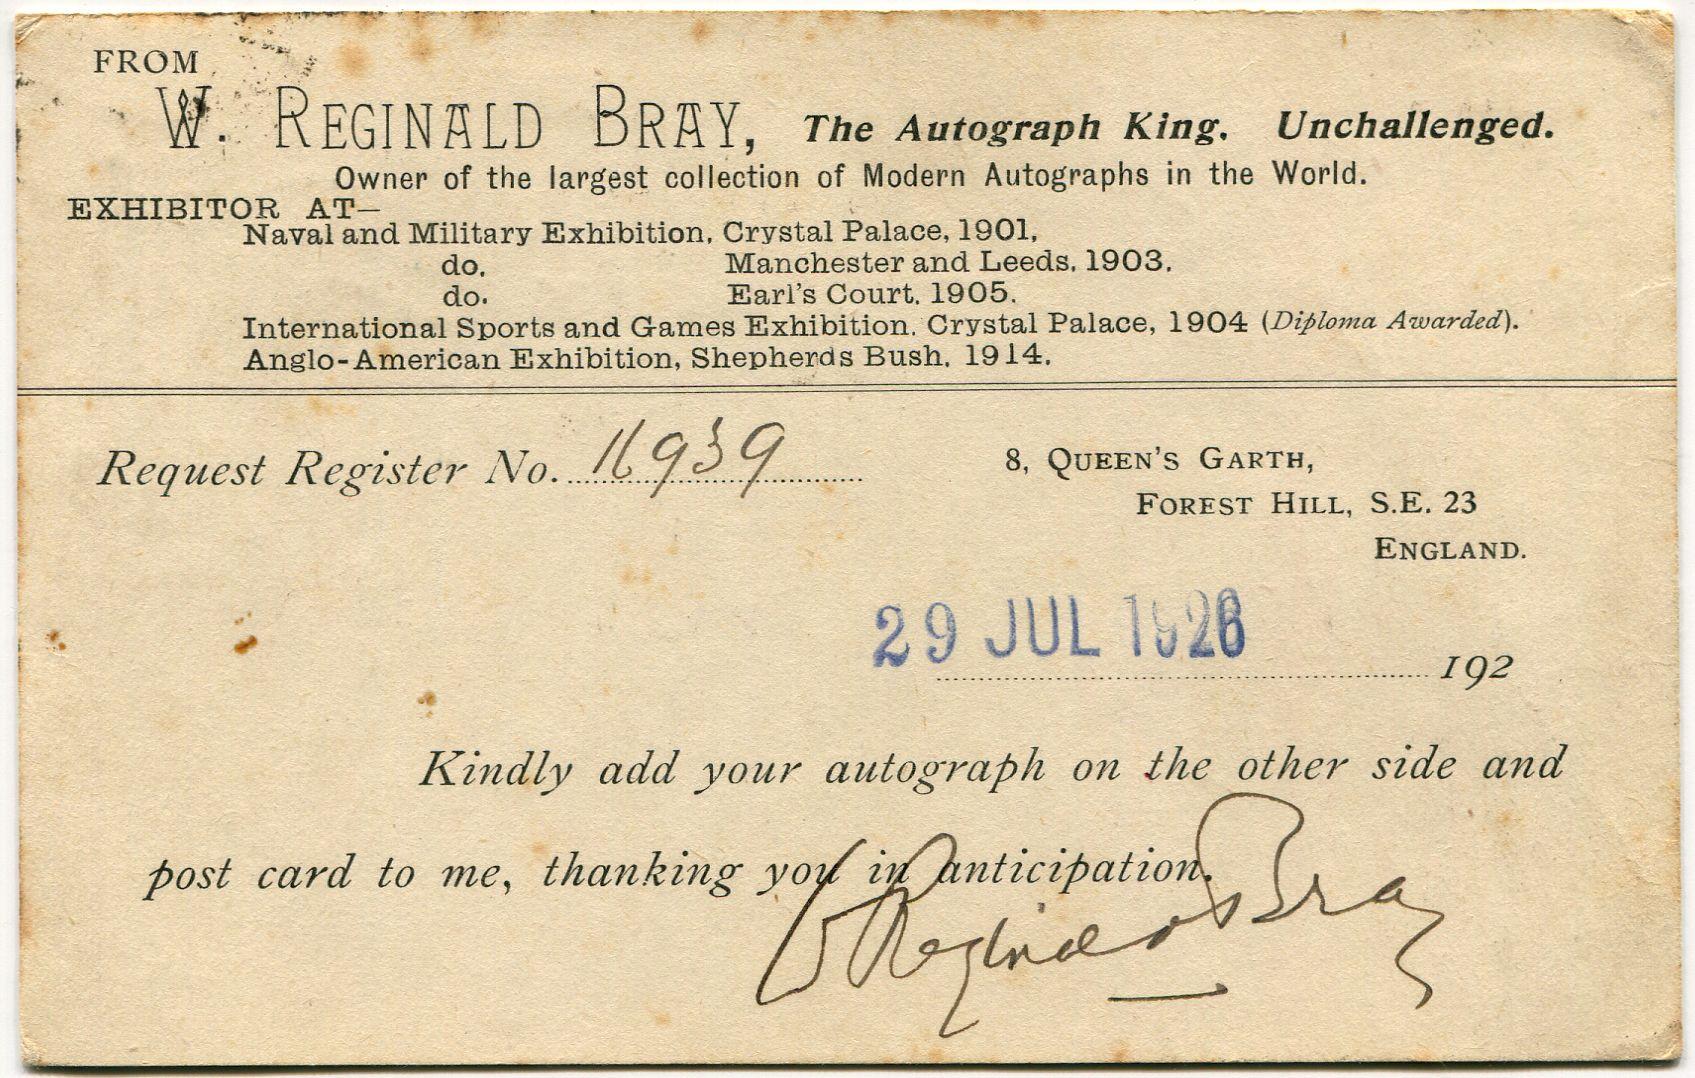 FROM
W. REGINALD BRAY, The Autograph King. Unchallenged.
Owner of the largest collection of Modern Autographs in the World.
EXHIBITOR AT—
Naval and Military Exhibition, Crystal Palace, 1901,
do. Manchester and Leeds, 1903.
do. Earl's Court, 1905.
International Sports and Games Exhibition, Crystal Palace, 1904 (Diploma Awarded).
Anglo-American Exhibition, Shepherds Bush, 1914.
Request Register No. 16939
8, QUEEN'S GARTH,
FOREST HILL, S.E. 23
ENGLAND.
29 JUL 1926
192
Kindly add your autograph on the other side and
post card to me, thanking you in anticipation.
W Reginald Bray